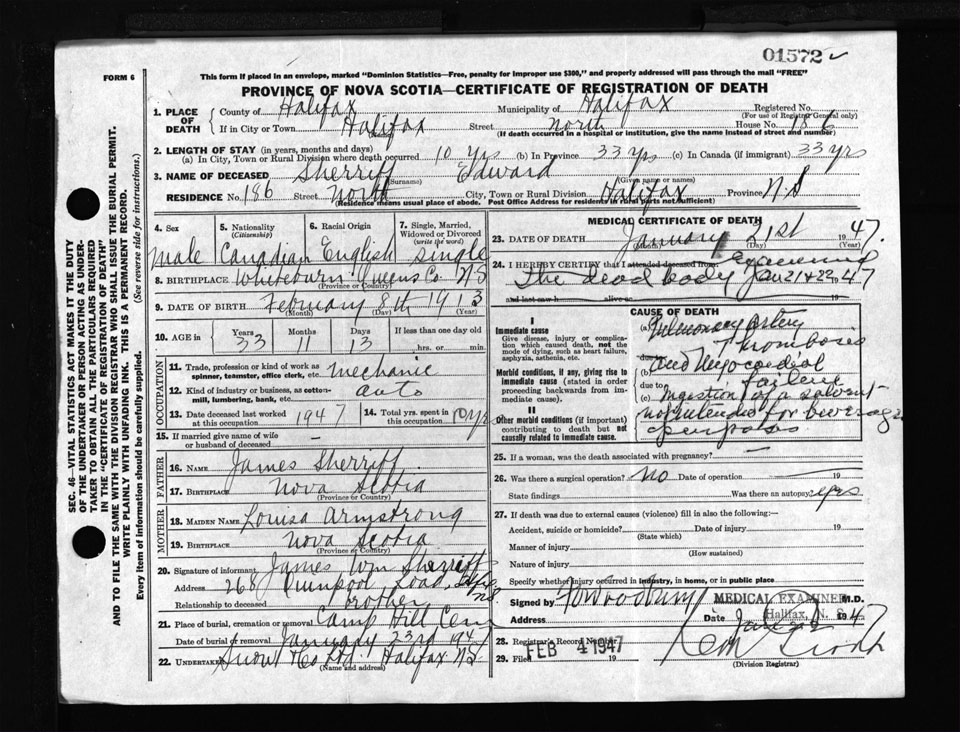 01572
FORM 6
This form if placed in an envelope, marked "Dominion Statistics—Free, penalty for improper use $300," and properly addressed will pass through the mail "FREE"
PROVINCE OF NOVA SCOTIA—CERTIFICATE OF REGISTRATION OF DEATH
SEC. 46—VITAL STATISTICS ACT MAKES IT THE DUTY
OF THE UNDERTAKER OR PERSON ACTING AS UNDER-
TAKER TO OBTAIN ALL THE PARTICULARS REQUIRED
IN THE "CERTIFICATE OF REGISTRATION OF DEATH"
AND TO FILE THE SAME WITH THE DIVISION REGISTRAR WHO SHALL ISSUE THE BURIAL PERMIT.
WRITE PLAINLY WITH UNFADING INK. THIS IS A PERMANENT RECORD.
Every item of information should be carefully supplied. (See reverse side for instructions.)
1. PLACE OF DEATH County of Halifax Municipality of Halifax Registered No.
(For use of Registrar General only)
If in City or Town Halifax Street North House No. 186
(If death occurred in a hospital or institution, give the name instead of street and number)
2. LENGTH OF STAY (in years, months and days)
(a) In City, Town or Rural Division where death occurred 10 yrs (b) In Province 33 yrs (c) In Canada (if immigrant) 33 yrs
3. NAME OF DECEASED Sherriff Edward
(Surname) (Given name or names)
RESIDENCE No. 186 Street North City, Town or Rural Division Halifax Province N.S
(Residence means usual place of abode. Post Office Address for residents in rural parts not sufficient)
4. Sex 5. Nationality (Citizenship) 6. Racial Origin 7. Single, Married, Widowed or Divorced (write the word)
male Canadian English single
8. BIRTHPLACE Whiteburn Queens Co N.S
(Province or Country)
9. DATE OF BIRTH February 8th 1913
(Month) (Day) (Year)
10. AGE in Years Months Days If less than one day old
33 11 13 hrs. or min.
OCCUPATION
11. Trade, profession or kind of work as spinner, teamster, office clerk, etc. mechanic
12. Kind of industry or business, as cotton-mill, lumbering, bank, etc. auto
13. Date deceased last worked at this occupation 1947 14. Total yrs. spent in this occupation 10 yrs
15. If married give name of wife or husband of deceased —
FATHER
16. NAME James Sherriff
17. BIRTHPLACE Nova Scotia
(Province or Country)
MOTHER
18. MAIDEN NAME Louisa Armstrong
19. BIRTHPLACE Nova Scotia
(Province or Country)
20. Signature of informant James Wm Sherriff
Address 268 Quinpool Road, Hfx N.S
Relationship to deceased brother
21. Place of burial, cremation or removal Camp Hill Cem
Date of burial or removal January 23rd 1947
22. UNDERTAKER Snow & Co Ltd. Halifax N.S
(Name and address)
MEDICAL CERTIFICATE OF DEATH
23. DATE OF DEATH January 21st 1947
(Month) (Day) (Year)
24. I HEREBY CERTIFY that I attended deceased from Examined
The dead body Jan 21 & 22 1947
and last saw h alive on 19
CAUSE OF DEATH
I
Immediate cause
Give disease, injury or complication which caused death, not the mode of dying, such as heart failure, asphyxia, asthenia, etc.
Morbid conditions, if any, giving rise to immediate cause (stated in order proceeding backwards from immediate cause).
II
Other morbid conditions (if important) contributing to death but not causally related to immediate cause.
(a) Pulmonary artery
Thrombosis
due to
(b) and Myocardial
due to failure
(c) Ingestion of a solvent
not intended for beverage
purposes
25. If a woman, was the death associated with pregnancy? —
26. Was there a surgical operation? no Date of operation 19
State findings Was there an autopsy? yes
27. If death was due to external causes (violence) fill in also the following:—
Accident, suicide or homicide? Date of injury 19
(State which)
Manner of injury
(How sustained)
Nature of injury
Specify whether injury occurred in industry, in home, or in public place
Signed by Woodbury MEDICAL EXAMINER M.D.
Address Date Jan 22 1947
Halifax, N. S.
28. Registrar's Record Number
29. Filed FEB 4 1947 19
(Division Registrar)